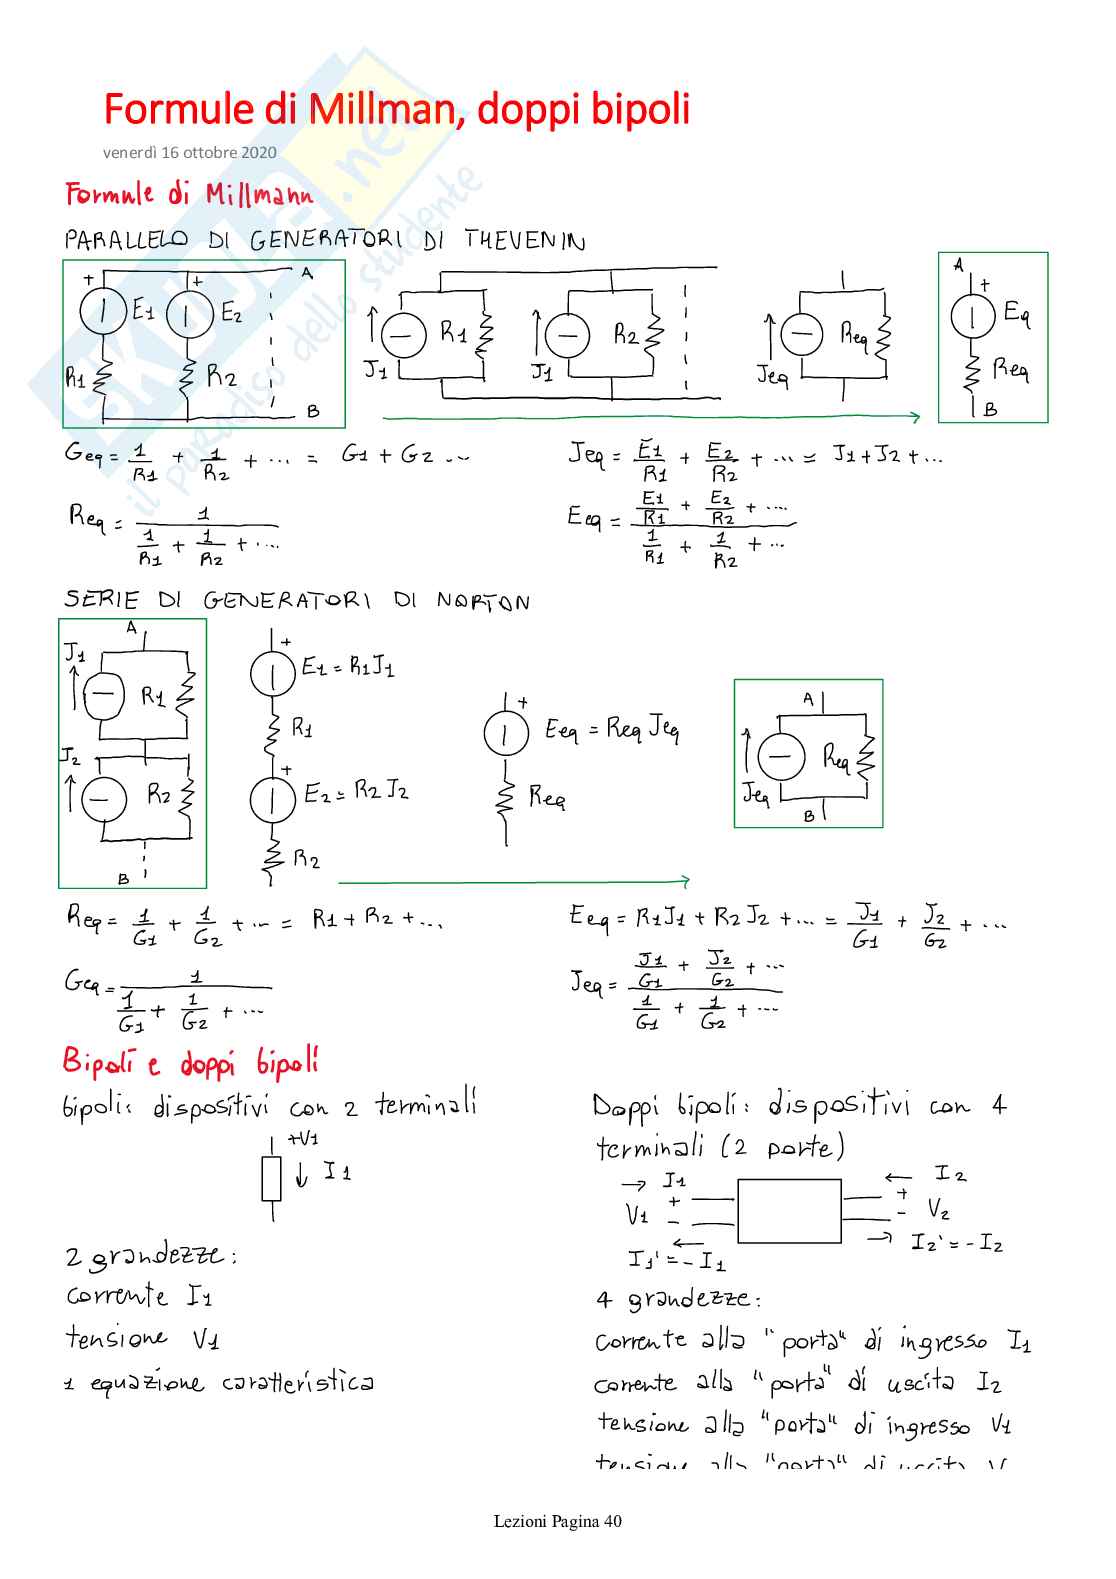 Formule di Millman, doppi bipoli
venerdì 16 ottobre 2020
Formule di Millmann
PARALLELO DI GENERATORI DI THEVENIN
+ E1 R1 + E2 R2 A B
J1 R1 J1 R2 Jeq Req
A + Eq Req B
Geq = 1/R1 + 1/R2 + ... = G1 + G2 ...
Jeq = E1/R1 + E2/R2 + ... = J1 + J2 + ...
Req = 1/(1/R1 + 1/R2 + ...)
Eeq = (E1/R1 + E2/R2 + ....)/(1/R1 + 1/R2 + ...)
SERIE DI GENERATORI DI NORTON
A J1 R1 J2 R2 B
+ E1 = R1J1
R1
+ E2 = R2J2
R2
+ Eeq = Req Jeq
Req
A Jeq Req B
Req = 1/G1 + 1/G2 + ... = R1 + R2 + ...
Eeq = R1J1 + R2J2 + ... = J1/G1 + J2/G2 + ...
Geq = 1/(1/G1 + 1/G2 + ...)
Jeq = (J1/G1 + J2/G2 + ...)/(1/G1 + 1/G2 + ...)
Bipoli e doppi bipoli
bipoli: dispositivi con 2 terminali
+V1
I1
2 grandezze:
corrente I1
tensione V1
1 equazione caratteristica
Doppi bipoli: dispositivi con 4
terminali (2 porte)
→ I1 ← I2
V1 + - + - V2
I1' = - I1 I2' = - I2
4 grandezze:
corrente alla "porta" di ingresso I1
corrente alla "porta" di uscita I2
tensione alla "porta" di ingresso V1
tensione alla "porta" di uscita V
Lezioni Pagina 40
SKUOLA.net
il paradiso dello studente